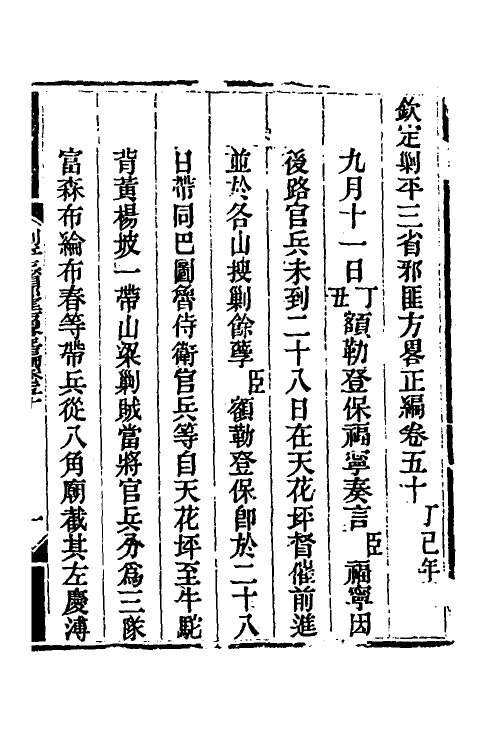 欽定剿平三省邪匪方畧正編卷五十 丁巳年
九月十一日丁丑額勒登保福寧奏言臣福寧因
後路官兵未到二十八日在天花坪督催前進
並於各山搜剿餘孽臣額勒登保卽於二十八
日帶同巴圖魯侍衛官兵等自天花坪至牛駝
背黃楊坡一帶山梁剿賊當將官兵分為三隊
富森布綸布春等帶兵從八角廟截其左慶溥